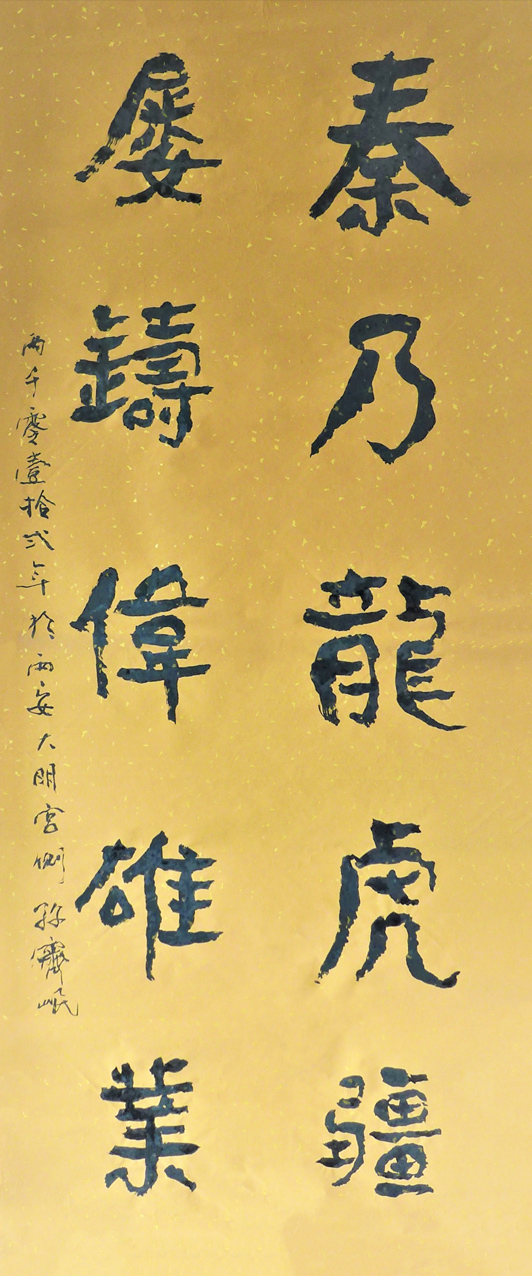 秦乃龍虎疆
屡鑄偉雄業
两千零壹拾弍年於西安大明宫侧孫霽岷